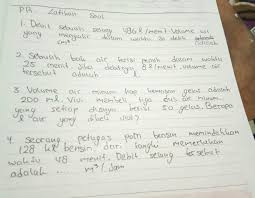 PR. Latihan Soal
1. Debit sebuah selang 486 l/menit. Volume air
yang mengalir dalam waktu 30 detik adalah
cm³
2. Sebuah bak air terisi penuh dalam waktu
25 menit jika debitnya 8 l/menit. Volume air
tersebut adalah
3. Volume air minum tiap kemasan gelas adalah
200 ml. Vivi membeli tiga dus air minum
yang setiap dusnya berisi 50 gelas. Berapa
l air yang dibeli Vivi?
4. Seorang petugas pom bensin memindahkan
128 kl bensin dari tangki memerlukan
waktu 48 menit. Debit selang tersebut
adalah .... m³/jam